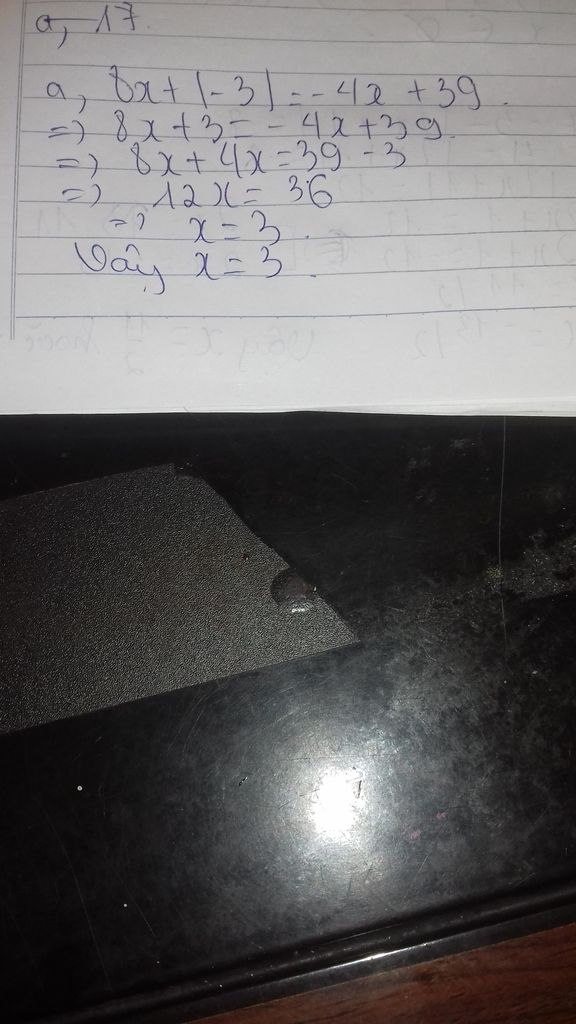 a, 17.
a, 8x + |-3| = -4x + 39.
=> 8x + 3 = -4x + 39.
=> 8x + 4x = 39 - 3
=> 12x = 36
=> x = 3.
Vậy x = 3.